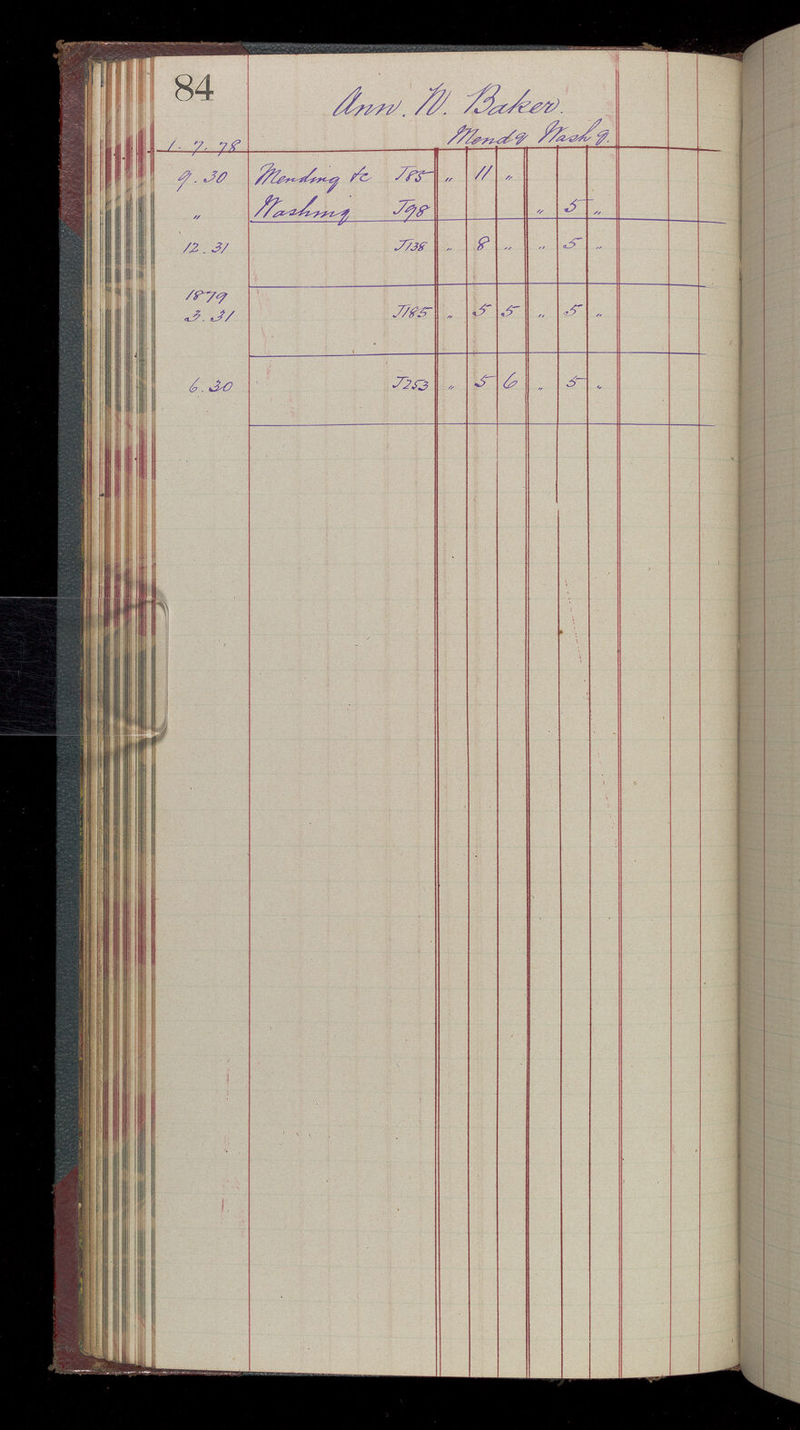 84
Ann. W. Baker.
1. 7. 78 Mendg Washg.
9. 30 Mending &c J85 " 11 "
" Washing J98 " 5 "
12. 31 J138 " 8 " " 5 "
1879
3. 31 J185 " 5 5 " 5 "
6. 30 J253 " 5 6 " 5 "